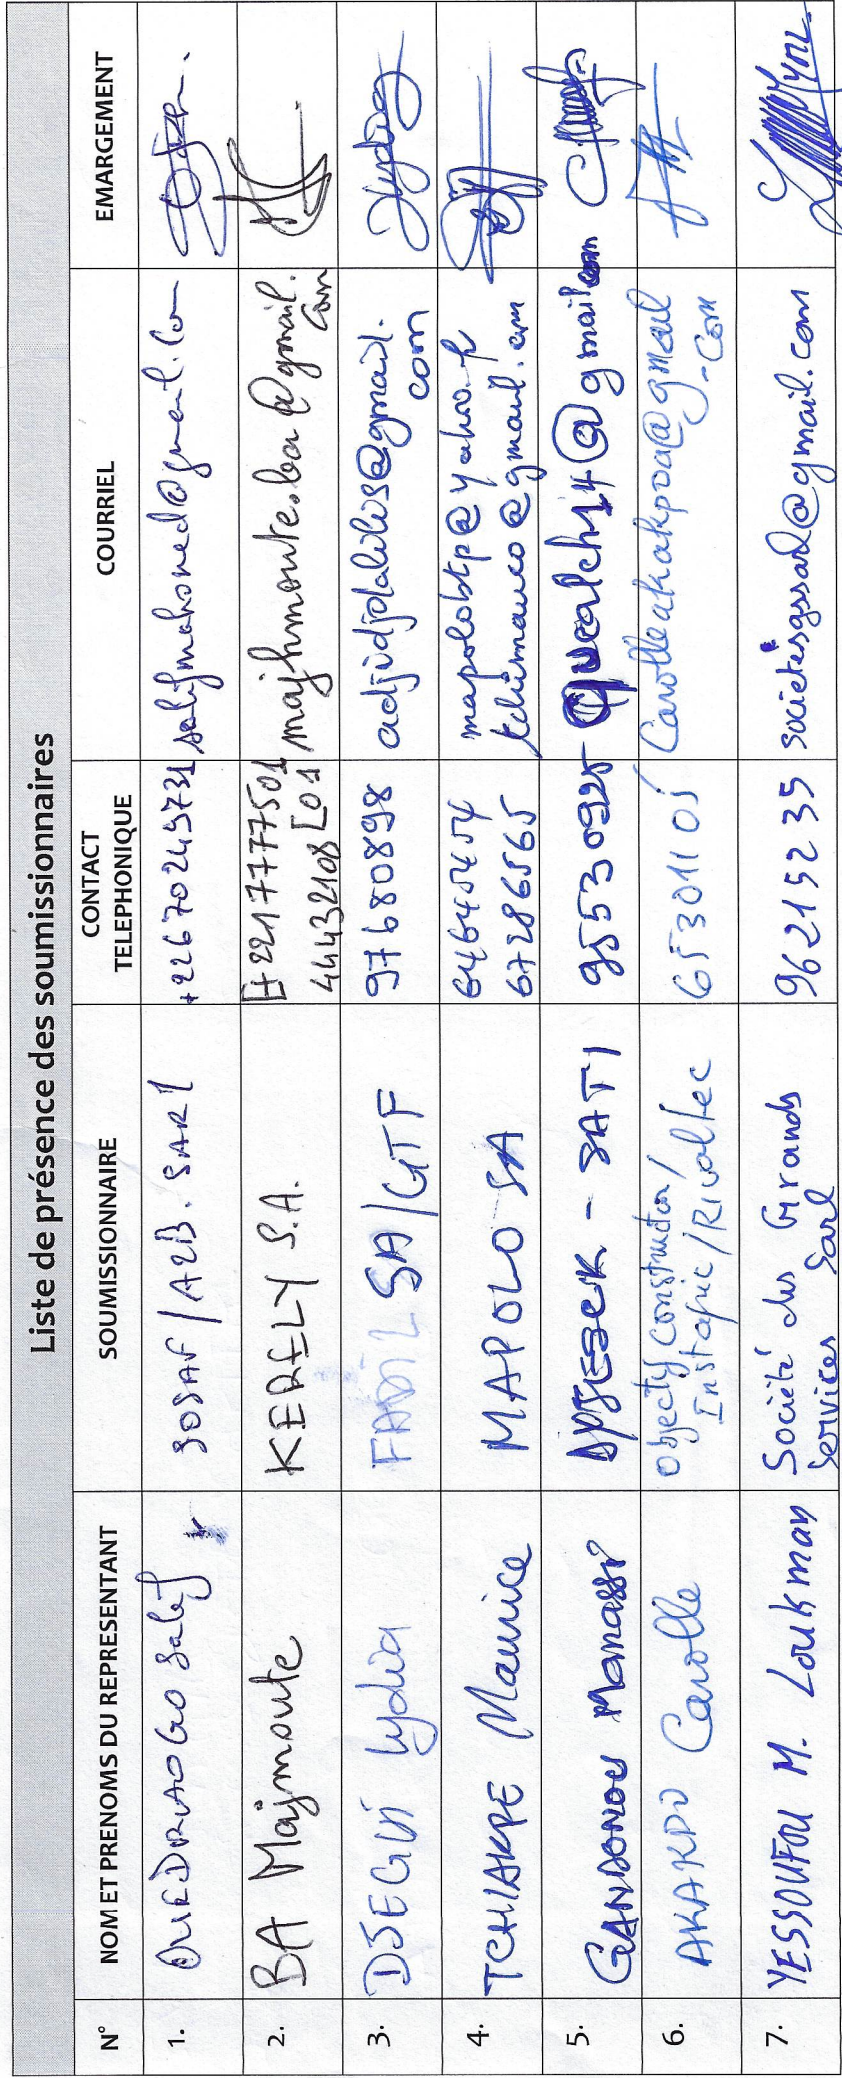 Liste de présence des soumissionnaires
N° NOM ET PRENOMS DU REPRESENTANT SOUMISSIONNAIRE CONTACT TELEPHONIQUE COURRIEL EMARGEMENT
1. OUEDRAOGO Salif SOSAF/A2B.SARL +22670249731 salifmahomed@gmail.com
2. BA Majmoute KERELY S.A. [+221777750144432108[01 majhmoute.ba@gmail.com
3. DJEGUI Lydia FADIL SA/GTF 97680898 @gmail.com Lydia
4. TCHIAKPE Maurice MAPOLO SA 64645454 mapolobtp@yahoo.fr
67286565 tchimauco@gmail.com
5. GANDONOU Manassé - SATI 95530925 @gmail.com
6. AKAKPO Carolle Objectif Construction/ 65301105 Carolleakakpoa@gmail
Instafric/Rivaltec .com
7. YESSOUFOU M. Loukman Société des Grands 96215235 societesgssarl@gmail.com
Services Sarl